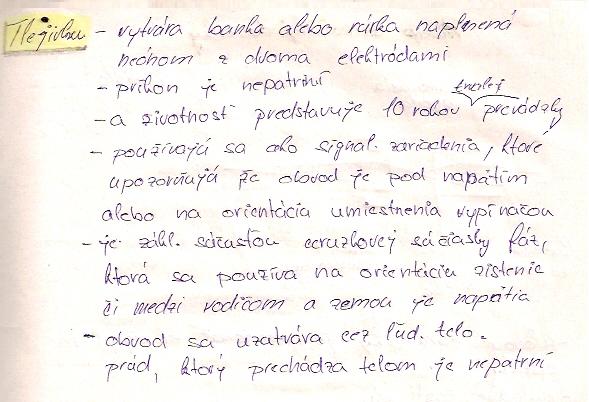 Tlejivku - vytvára banka alebo rúrka naplnená
neónom z dvoma elektródami
- príkon je nepatrní
trvalej
- a životnosť predstavuje 10 rokov prevádzky
- používajú sa ako signal. zariadenia, ktoré
upozorňujú že obvod je pod napätím
alebo na orientáciu umiestnenia vypínačou
- je zákl. súčasťou ceruzkovej súčiasky fáz,
ktorá sa používa na orientáciu zistenie
či medzi vodičom a zemou je napätia
- obvod sa uzatvára cez ľud. telo.
prúd, ktorý prechádza telom je nepatrní